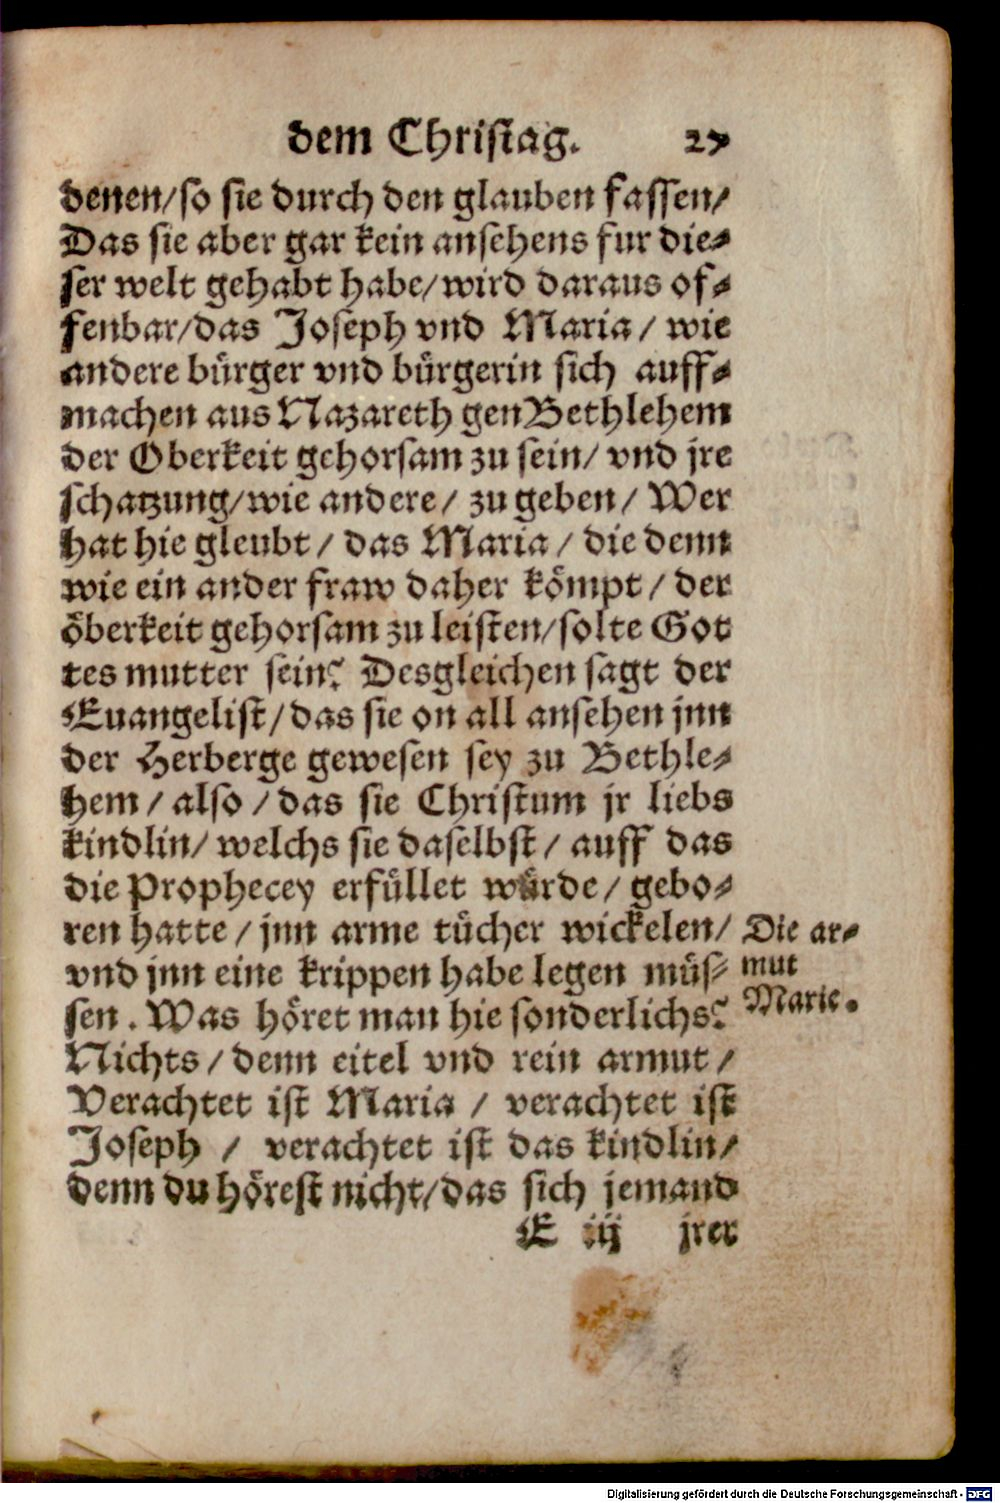 dem Christag. 27
denen/so sie durch den glauben fassen/
Das sie aber gar kein ansehens fur die⸗
ser welt gehabt habe/wird daraus of⸗
fenbar/das Joseph vnd Maria/ wie
andere bürger vnd bürgerin sich auff⸗
machen aus Nazareth gen Bethlehem
der Oberkeit gehorsam zu sein/ vnd jre
schatzung/wie andere/ zu geben/ Wer
hat hie gleubt/ das Maria/ die denn
wie ein ander fraw daher kömpt/ der
öberkeit gehorsam zu leisten/solte Got
tes mutter sein? Desgleichen sagt der
Euangelist/das sie on all ansehen jnn
der Herberge gewesen sey zu Bethle⸗
hem/ also/das sie Christum jr liebs
kindlin/ welchs sie daselbst/ auff das
die Prophecey erfüllet würde/ gebo⸗
ren hatte/ jnn arme tücher wickelen/
vnd jnn eine krippen habe legen müs⸗
sen. Was höret man hie sonderlichs?
Nichts/ denn eitel vnd rein armut/
Verachtet ist Maria/ verachtet ist
Joseph/ verachtet ist das kindlin/
denn du hörest nicht/das sich jemand
E iij jrer
Die ar⸗
mut
Marie.
Digitalisierung gefördert durch die Deutsche Forschungsgemeinschaft - DFG